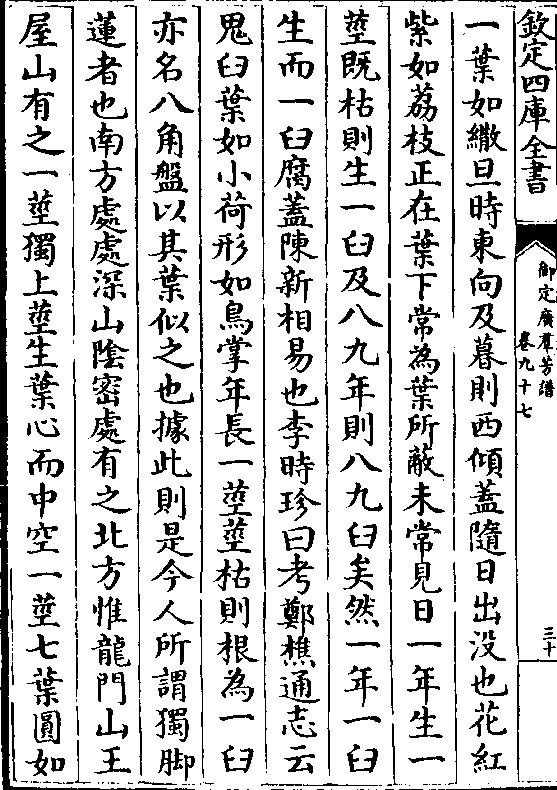 欽定四庫全書
御定廣羣芳譜
卷九十七
三十
一葉如繖旦時東向及暮則西傾蓋隨日出没也花紅
紫如荔枝正在葉下常為葉所蔽未常見日一年生一
莖既枯則生一臼及八九年則八九臼矣然一年一臼
生而一臼腐蓋陳新相易也李時珍曰考鄭樵通志云
鬼臼葉如小荷形如鳥掌年長一莖莖枯則根為一臼
亦名八角盤以其葉似之也據此則是今人所謂獨脚
蓮者也南方處處深山陰密處有之北方惟龍門山王
屋山有之一莖獨上莖生葉心而中空一莖七葉圓如